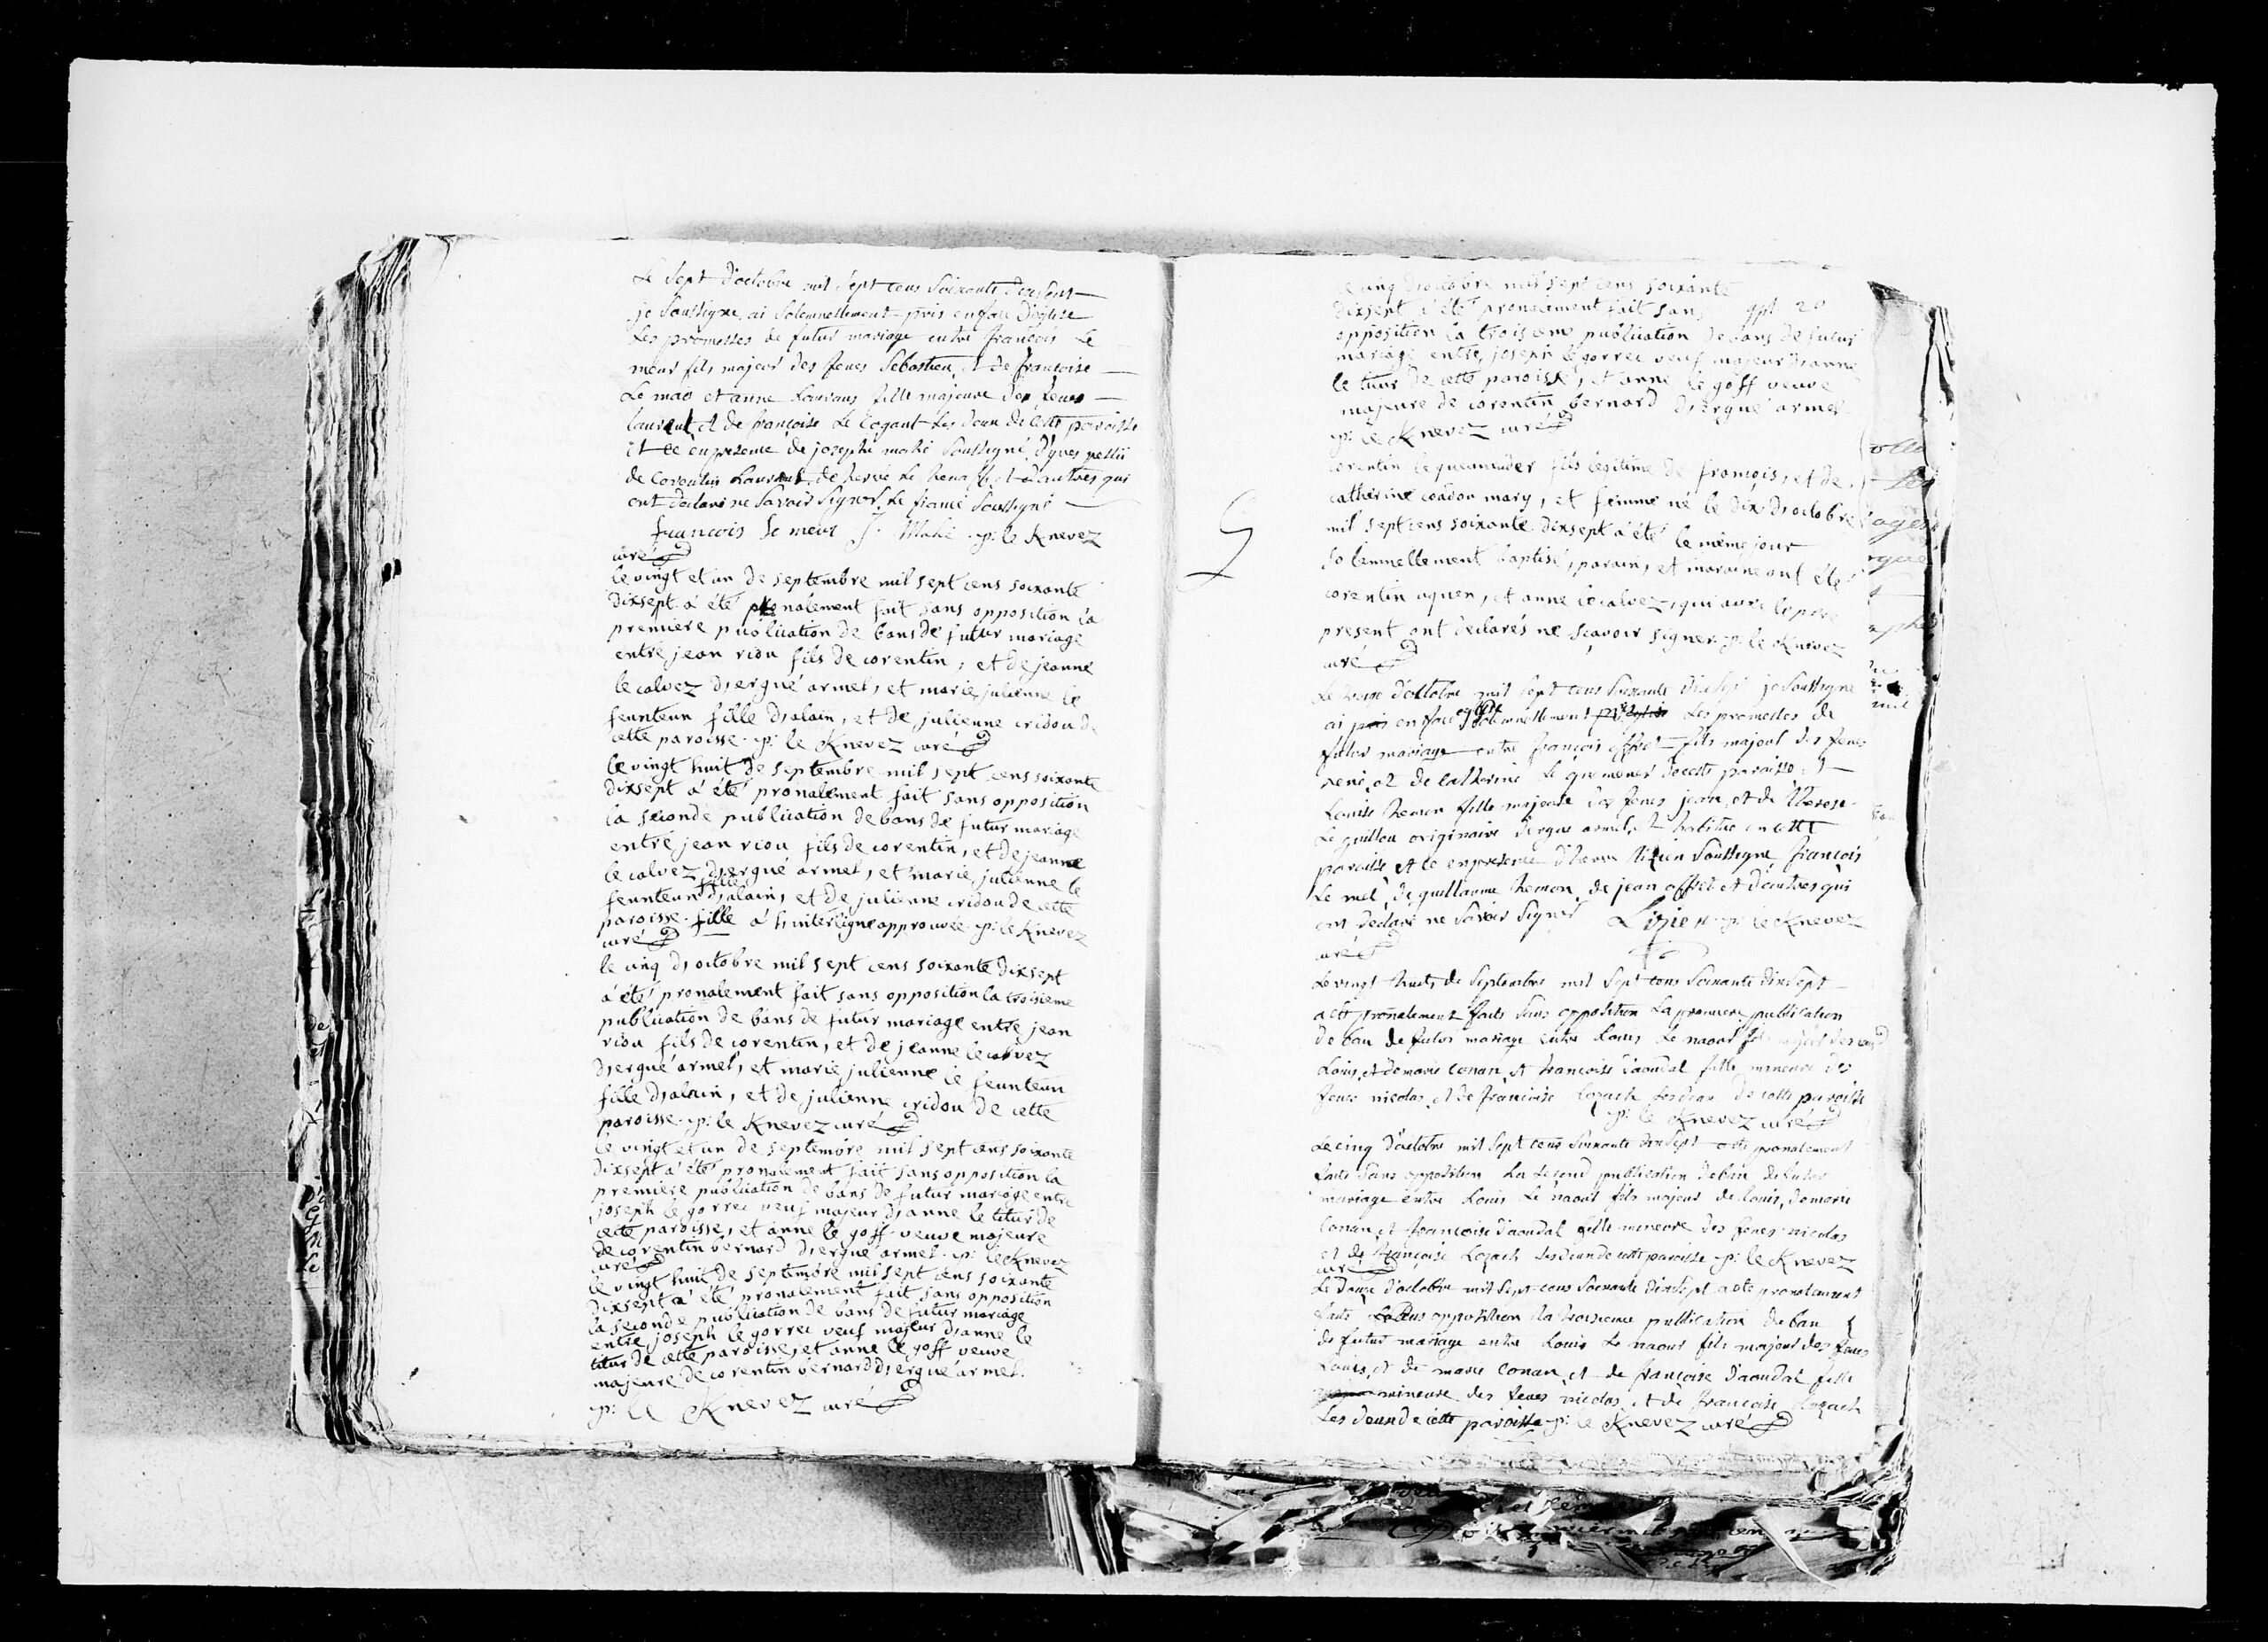 Le Sept d'octobre mil Sept cens Soixante dixsept
je Soussigné, ai Solemnellement pris en face d'église
les promesses de futur mariage entre françois Le
meur fils majeur des feues Sébastien, et de françoise
Le mao et anne Laurans fille majeure des feues
laurent, et de françoise Le Cogant les deux de cette paroisse
et ce en presence de joseph mahé Soussigné, d'yves
de Corentin Laurant, de hervé Le henaff, et d'autres qui
ont declaré ne Savoir Signer, le fiancé Soussigné
francois le meur J. Mahé p: le Knevez
curé
le vingt et un de septembre mil sept cens soixante
dixsept a été pronalement fait sans opposition la
premiere publication de bans de futur mariage
entre jean riou fils de corentin, et de jeanne
le calvez d'ergué armel, et marie julienne le
feunteun fille d'alain, et de julienne cridou de
cette paroisse. p: le Knevez curé
le vingt huit de septembre mil sept cens soixante
dixsept a été pronalement fait sans opposition
la seconde publication de bans de futur mariage
entre jean riou fils de corentin, et de jeanne
le calvez d'ergué armel, et marie julienne le
feunteun fille d'alain, et de julienne cridou de cette
paroisse. fille a l'interligne approuvée. p: le Knevez
curé
le cinq d'octobre mil sept cens soixante dixsept
a été pronalement fait sans opposition la troisieme
publication de bans de futur mariage entre jean
riou fils de corentin, et de jeanne le calvez
d'ergué armel, et marie julienne le feunteun
fille d'alain, et de julienne cridou de cette
paroisse. p: le Knevez curé
le vingt et un de septembre mil sept cens soixante
dixsept a été pronalement fait sans opposition la
premiere publication de bans de futur mariage entre
joseph le gorrec veuf majeur d'anne le titur de
cette paroisse, et anne le goff veuve majeure
de corentin bernard d'ergué armel. p: le Knevez
curé
le vingt huit de septembre mil sept cens soixante
dixsept a été pronalement fait sans opposition
la seconde publication de bans de futur mariage
entre joseph le gorrec veuf majeur d'anne le
titur de cette paroisse, et anne le goff veuve
majeure de corentin bernard d'ergué armel.
p: le Knevez curé
le cinq d'octobre mil sept cens soixante
dixsept a été pronalement fait sans 20
opposition la troisieme publication de bans de futur
mariage entre joseph le gorrec veuf majeur d'anne
le titur de cette paroisse, et anne le goff veuve
majeure de corentin bernard d'ergué armel
p: le Knevez curé
corentin le quemender fils legitime de françois, et de
catherine coadou mary, et femme né le dix d'octobre
mil sept cens soixante dixsept a été le même jour
solemnellement baptisé, parain, et maraine ont été
corentin, et anne le calvez, qui avec le pere
present ont declarés ne sçavoir signer. p: le Knevez
curé
Le d'octobre mil Sept cens Soixante dixsept je Soussigné
ai pris en face eglise Solemnellement les promesses de
futur mariage entre françois offret fils majeur des feues
rené, et de catherine Le quemener de cette paroisse, et
Louise hemon fille majeure des feues jean, et de Therese
Le guillou originaire d'ergue armel, et habitue en cette
paroisse et ce en presence Soussigné, françois
Le mel, de guillaume hemon, de jean offret et d'autres qui
ont declaré ne Savoir Signer p: le Knevez
curé
Le vingt huit de Septembre mil Sept cens Soixante dixsept
a été pronalement fait Sans opposition La premiere publication
de ban de futur mariage entre Louis Le naour fils majeur des
Louis, et de marie Conan, et francoise daoudal fille mineure des
feues nicolas, et de francoise Lozach les deux de cette paroisse
p: le Knevez curé
Le cinq d'octobre mil Sept cens Soixante dixsept a été pronalement
faite Sans opposition La Second publication de ban de futur
mariage entre Louis Le naour fils majeur de Louis, de marie
Conan, et francoise daoudal fille mineure des feues nicolas
et de françoise Lozach les deux de cette paroisse p: le Knevez
curé
Le Douze d'octobre mil Sept cens Soixante dixsept a été pronalement
faite Sans opposition la troisieme publication de ban
de futur mariage entre Louis Le naour fils majeur des feues
Louis, et de marie Conan, et de françoise daoudal fille
mineure des feues nicolas, et de francoise Lozach
Les deux de cette paroisse p: le Knevez curé